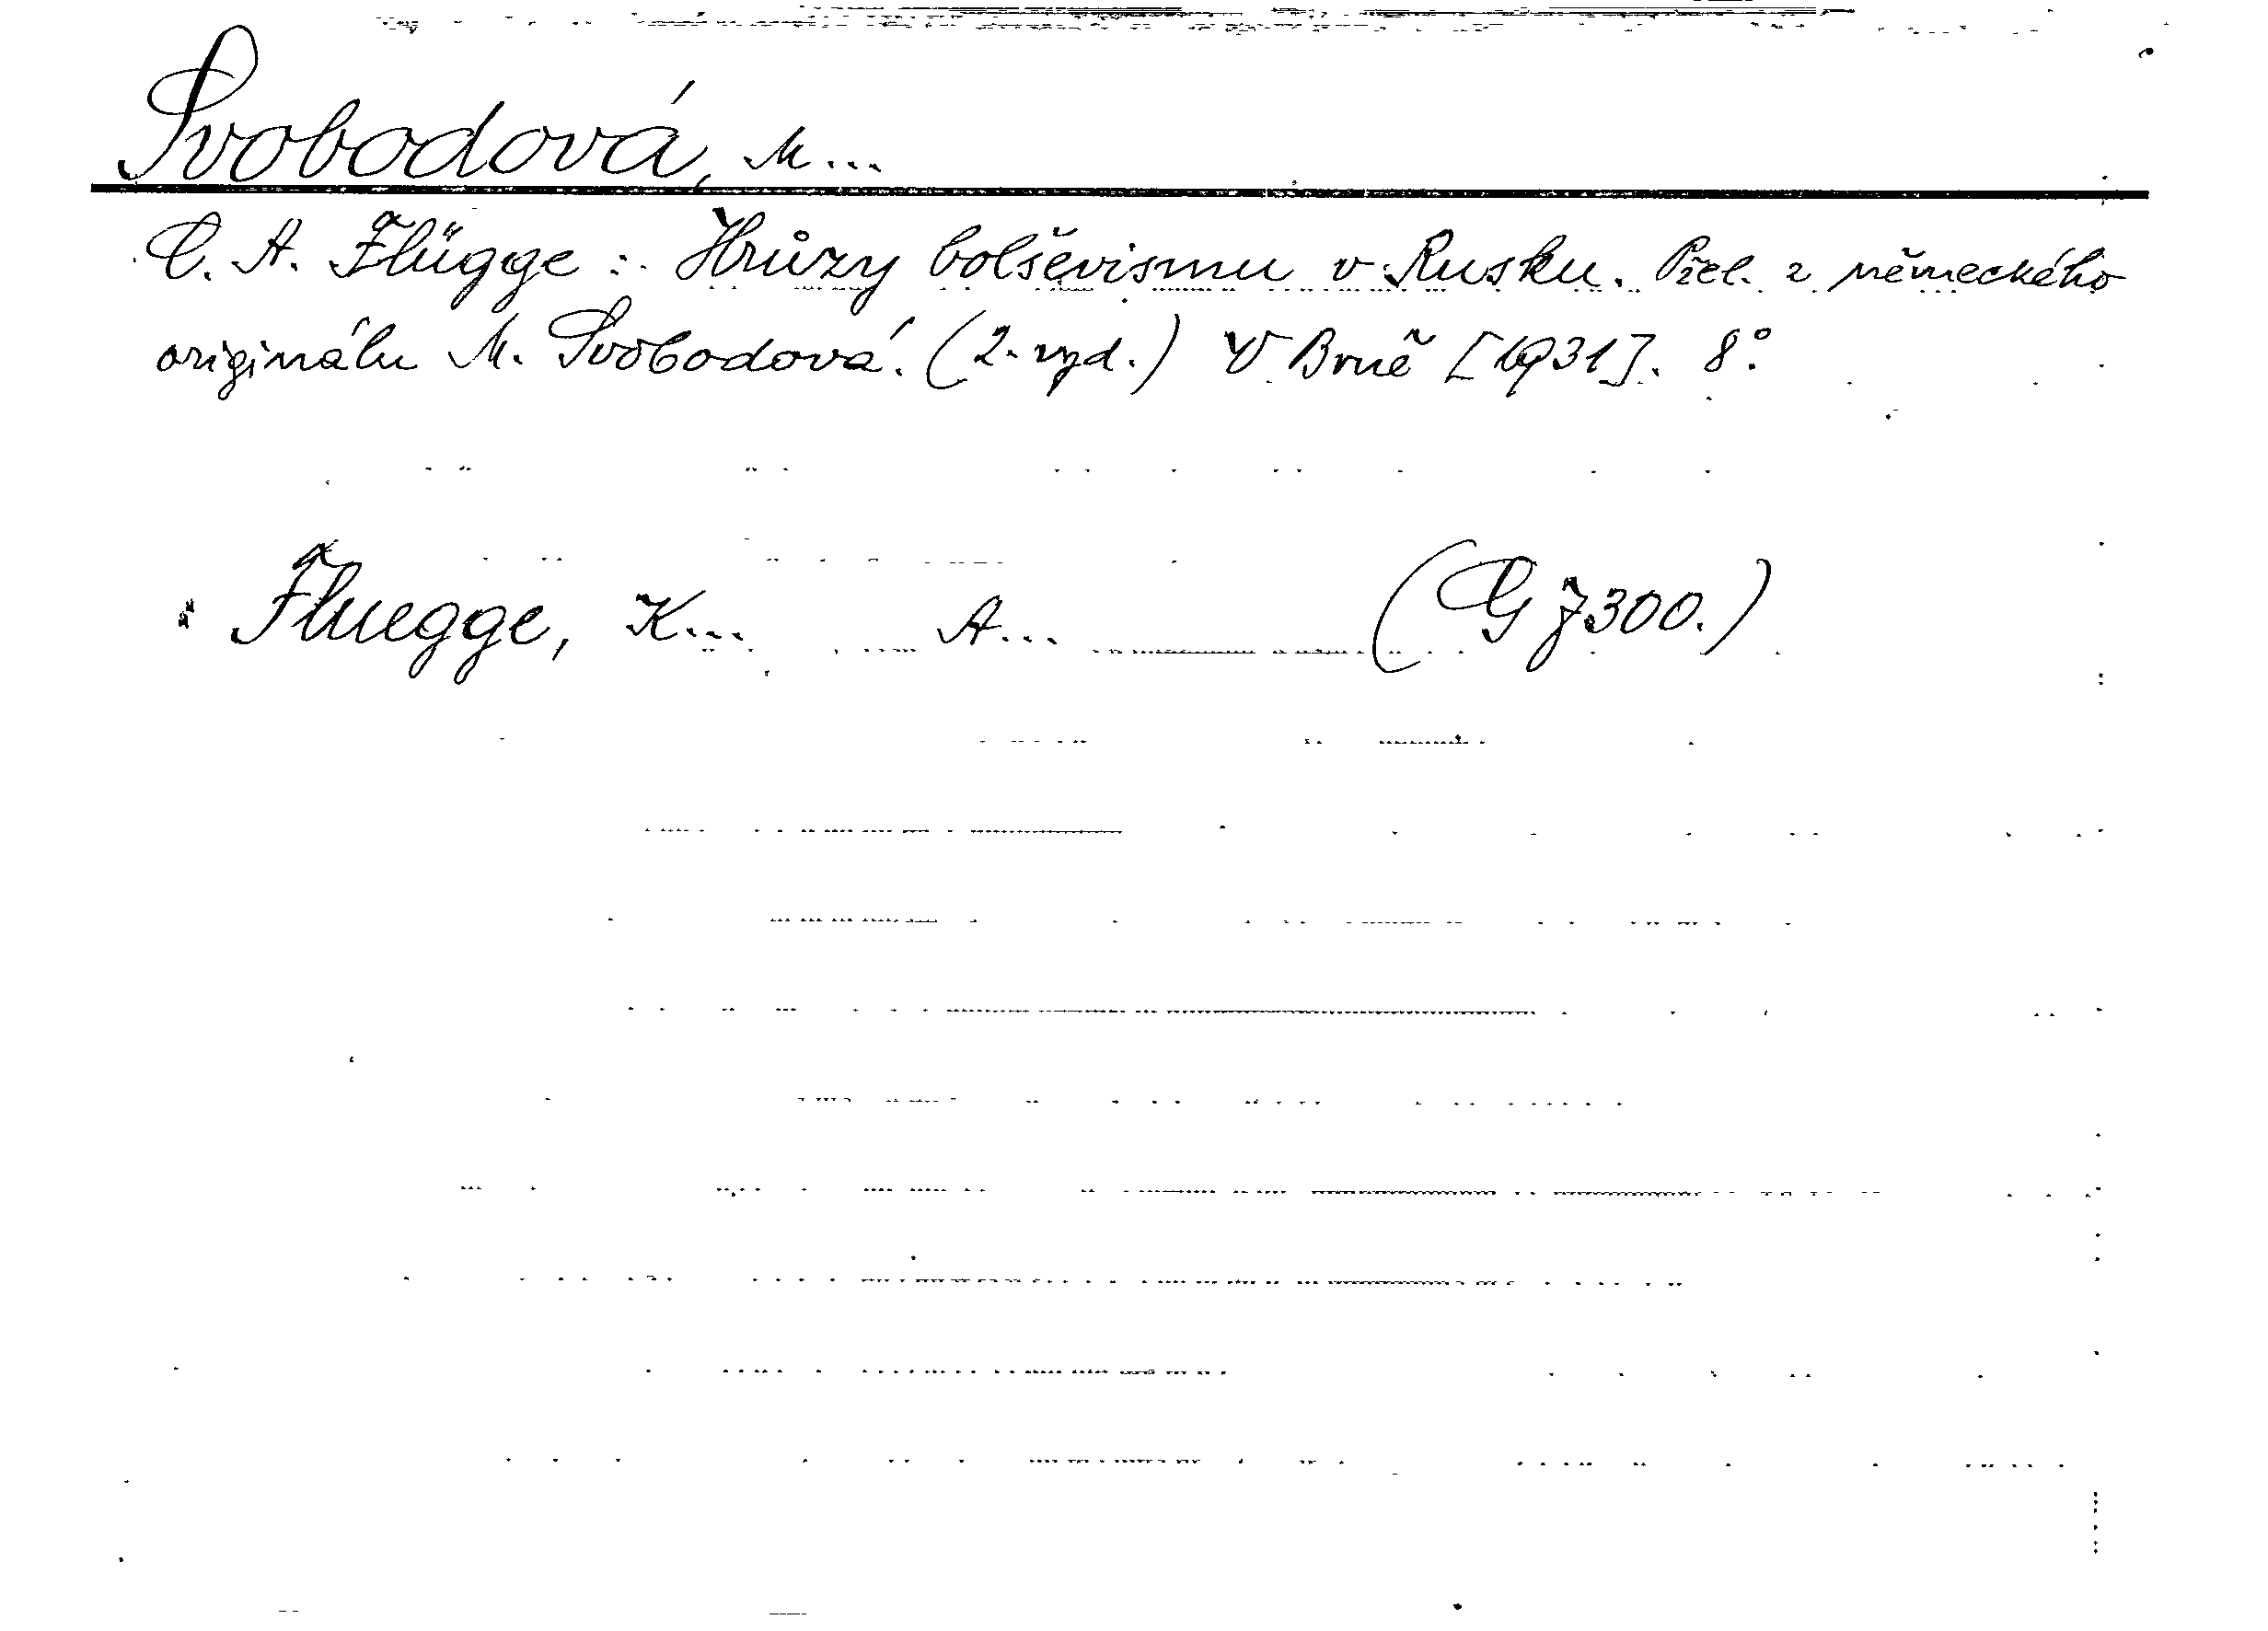 Svobodová, M...
C. A. Flügge : Hrůzy bolševismu v Rusku. Přel. z německého
originálu M. Svobodová. (2. vyd.) V Brně [1931]. 8°.
Fluegge, K... A... (G J 300.)